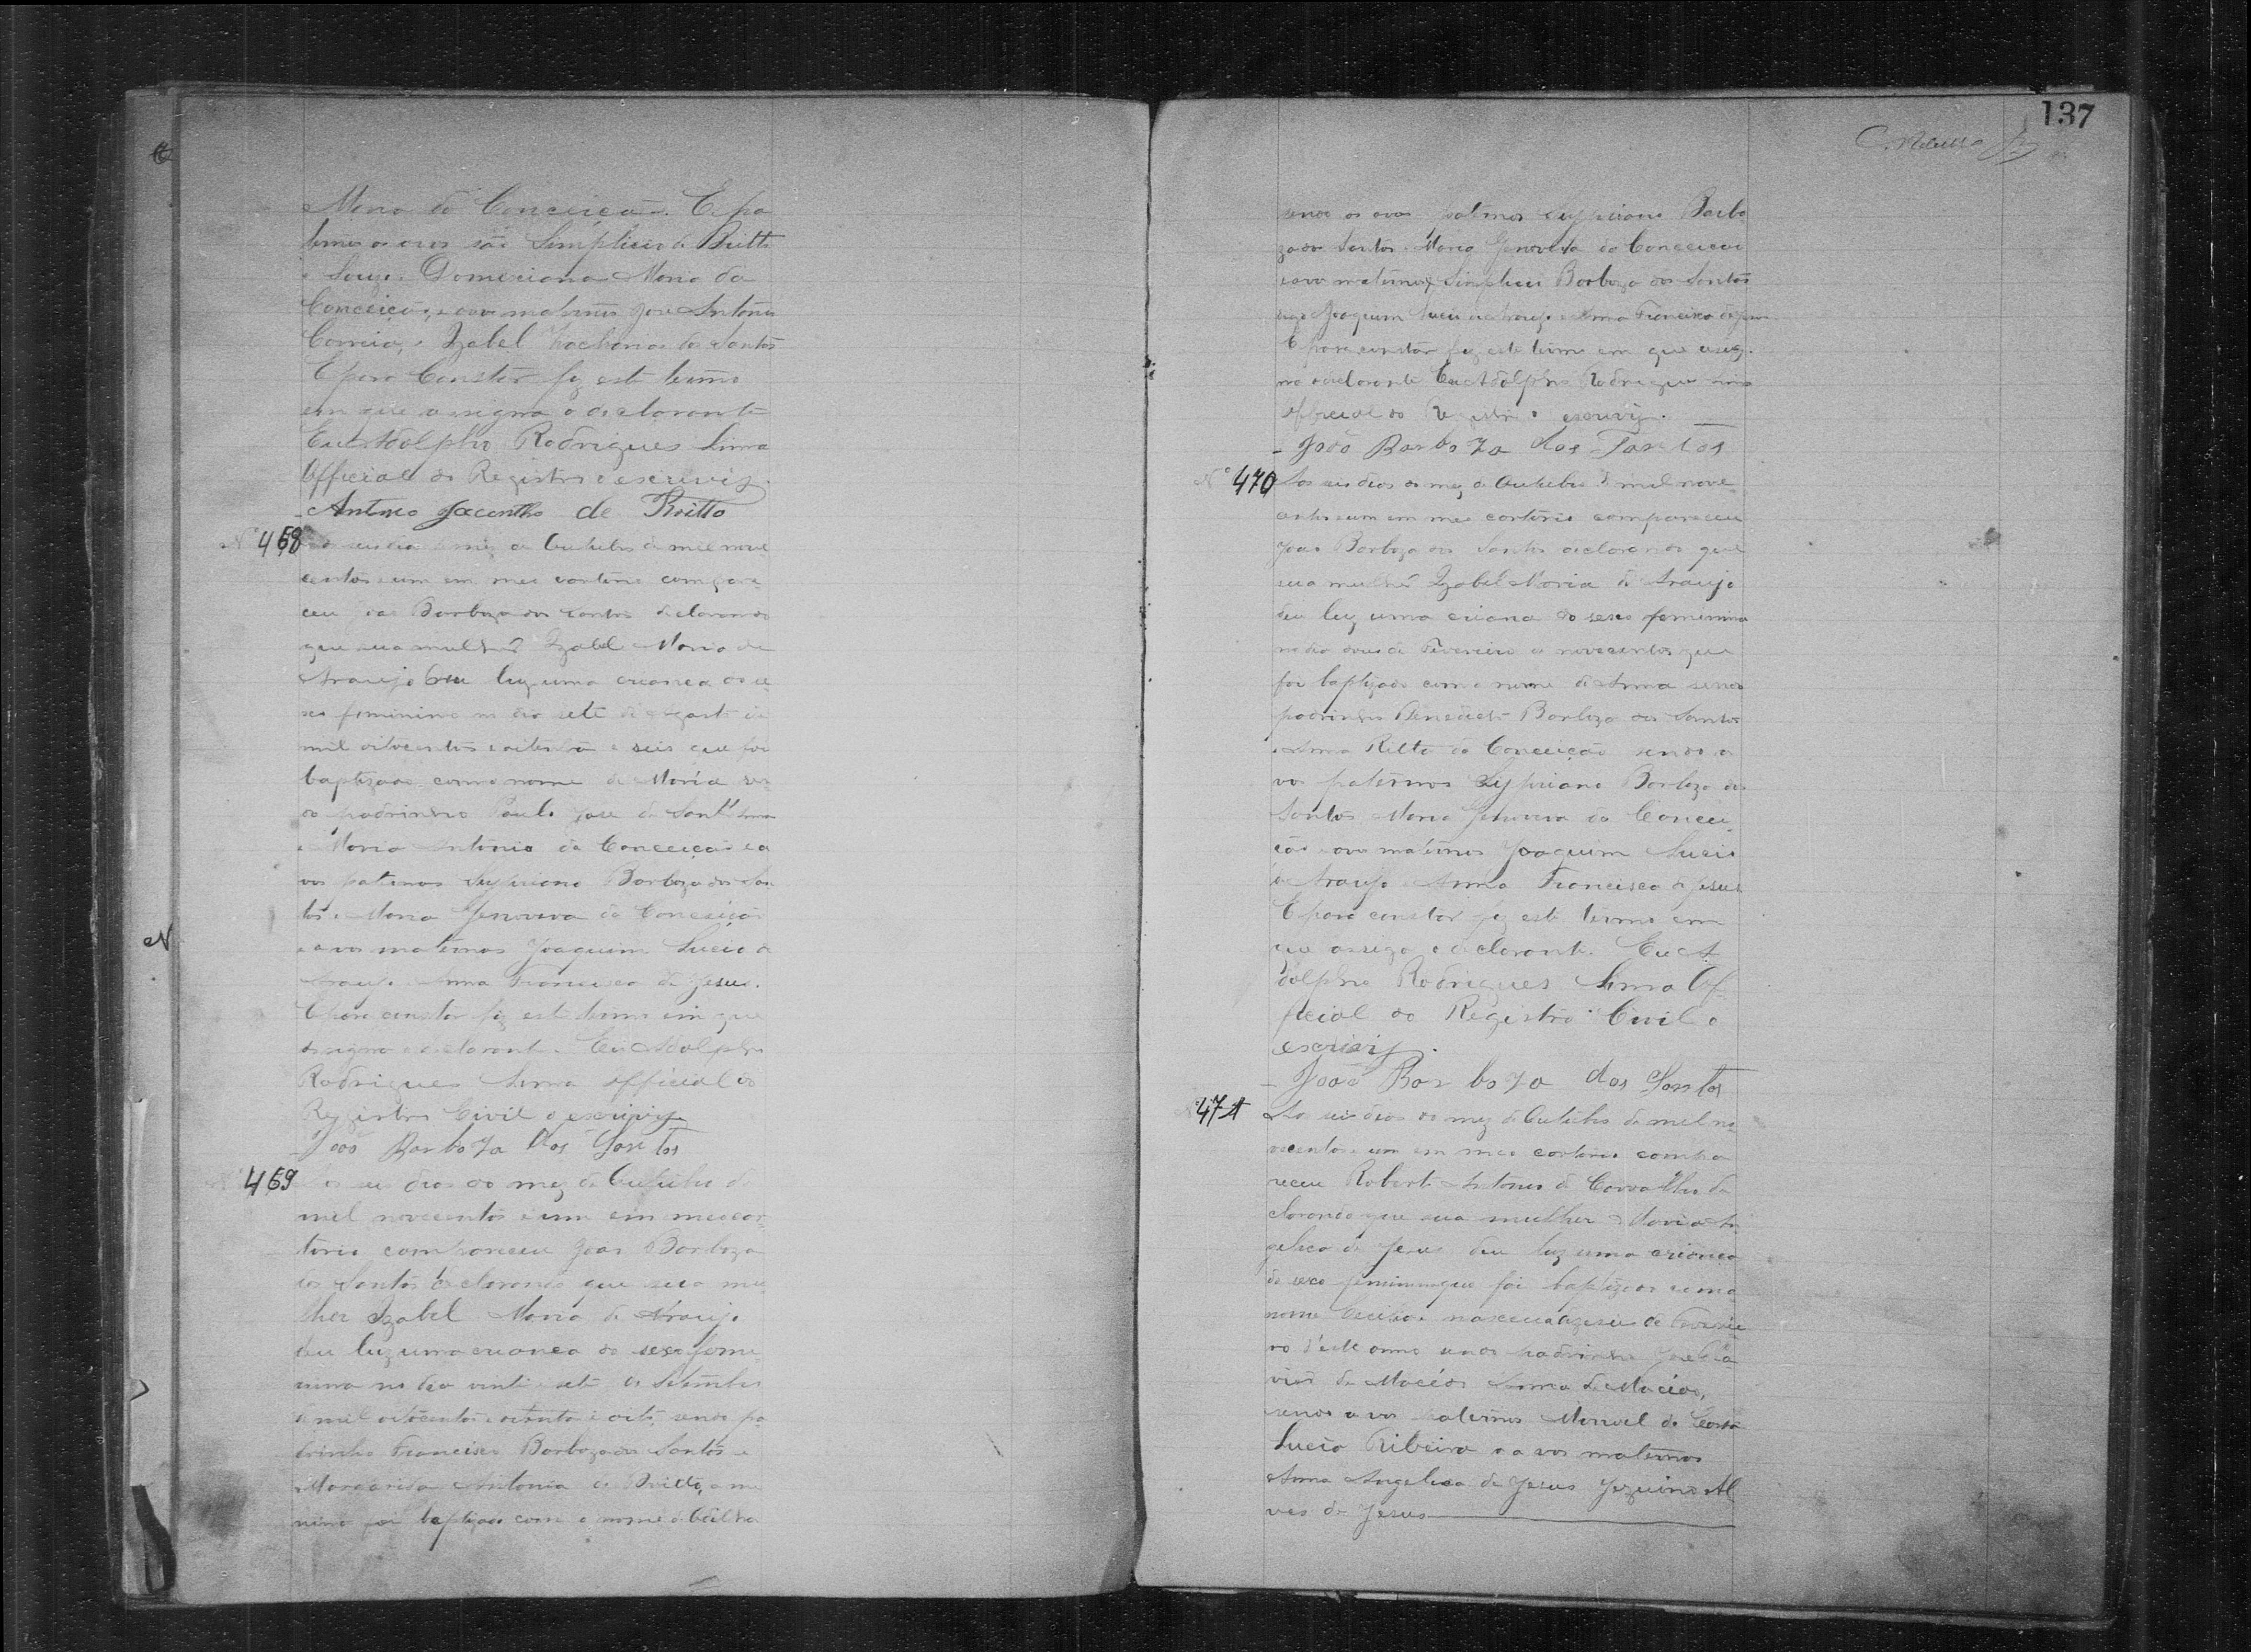 Maria da Conceição. E pa
ternos os avos são Simplicio de Britto
e Souza e Domeciana Maria da
Conceição, e avos maternos Jose Antonio
Correia, e Izabel Zacharias dos Santos
E para Constar fiz este termo
em que assigna o declarante
Eu Adolpho Rodrigues Lima
Official do Registro o escrevij.
Antonio Jacintho de Britto
Nº 468 seis dias do mez de Outubro de mil nove
centos e um em meu cartorio compare
ceu João Barboza dos Santos declarando
que sua mulher Izabel Maria de
Araujo deu luz uma creanca do se
xo feminino no dia sete de Agosto de
mil oitocentos e oitenta e seis que foi
baptizada com o nome de Maria sen
do padrinho Paulo Jose de Sant'Anna
e Maria Antonia da Conceição e a
vos paternos Sypriano Barboza dos San
tos e Maria Genoveva da Conceição
e avos maternos Joaquim Lucio de
Araujo e Anna Francisca de Jesus.
E para constar fiz este termo em que
assigna o declarante. Eu Adolpho
Rodrigues Lima official do
Registro Civil o escrevij
João Barboza dos Santos
469 Aos seis dias do mez de Outubro de
mil novecentos e um em meo car
torio compareceu João Barboza
dos Santos declarando que sua mu
lher Izabel Maria de Araujo
deu luz uma creanca do sexo femi
nino no dia vinte e sete de Setembro
de mil oitocentos e oitenta e oito, sendo pa
drinho Francisco Barboza dos Santos e
Margarida Antonia de Britto, a me
nina foi baptizada com o nome de
137
sendo os avos paternos Sypriano Barbo
za dos Santos e Maria Genoveva da Conceicão
e avos maternos Simplicio Barboza dos Santos
digo Joaquim Lucio de Araujo e Anna Francisca de Jesus
E para constar fiz este termo em que assig
na o declarante Eu Adolpho Rodrigues Lima
official do Registro o escrevij.
João Barboza dos Santos
Nº 470 Aos seis dias do mez de Outubro de mil nove
centos e um em meu cartorio compareceu
João Barboza dos Santos declarando que
sua mulher Izabel Maria de Araujo
deu luz uma criana do sexo feminino
no dia dous de Fevereiro de novecentos que
foi baptizada com o nome de Anna sendo
padrinhos Benedicto Barboza dos Santos
e Anna Ritta da Conceição sendo a
vos paternos Sypriano Barboza dos
Santos e Maria Genoveva da Concei
ção e avos maternos Joaquim Lucio
de Araujo e Anna Francisca de Jesus
E para constar fiz este termo em
que assiga o declarante. Eu A
dolpho Rodrigues Lima Of
ficial do Registro Civil o
escrevij.
João Barboza dos Santos
Nº 471 Aos seis dias do mez de Outubro de mil no
vecentos e um em meu cartorio compa
receu Roberto Antonio de Carvalho de
clarando que sua mulher Maria An
gelica de Jesus deu luz uma creanca
do sexo feminino que foi baptizada com o
nome
ro d'este anno sendo padrinho
de Macêdo e Anna de Macêdo,
sendo avos paternos Manoel da Costa
Lucio Ribeiro e avos maternos
Anna Angelica de Jesus Jezuino Al
ves de Jesus